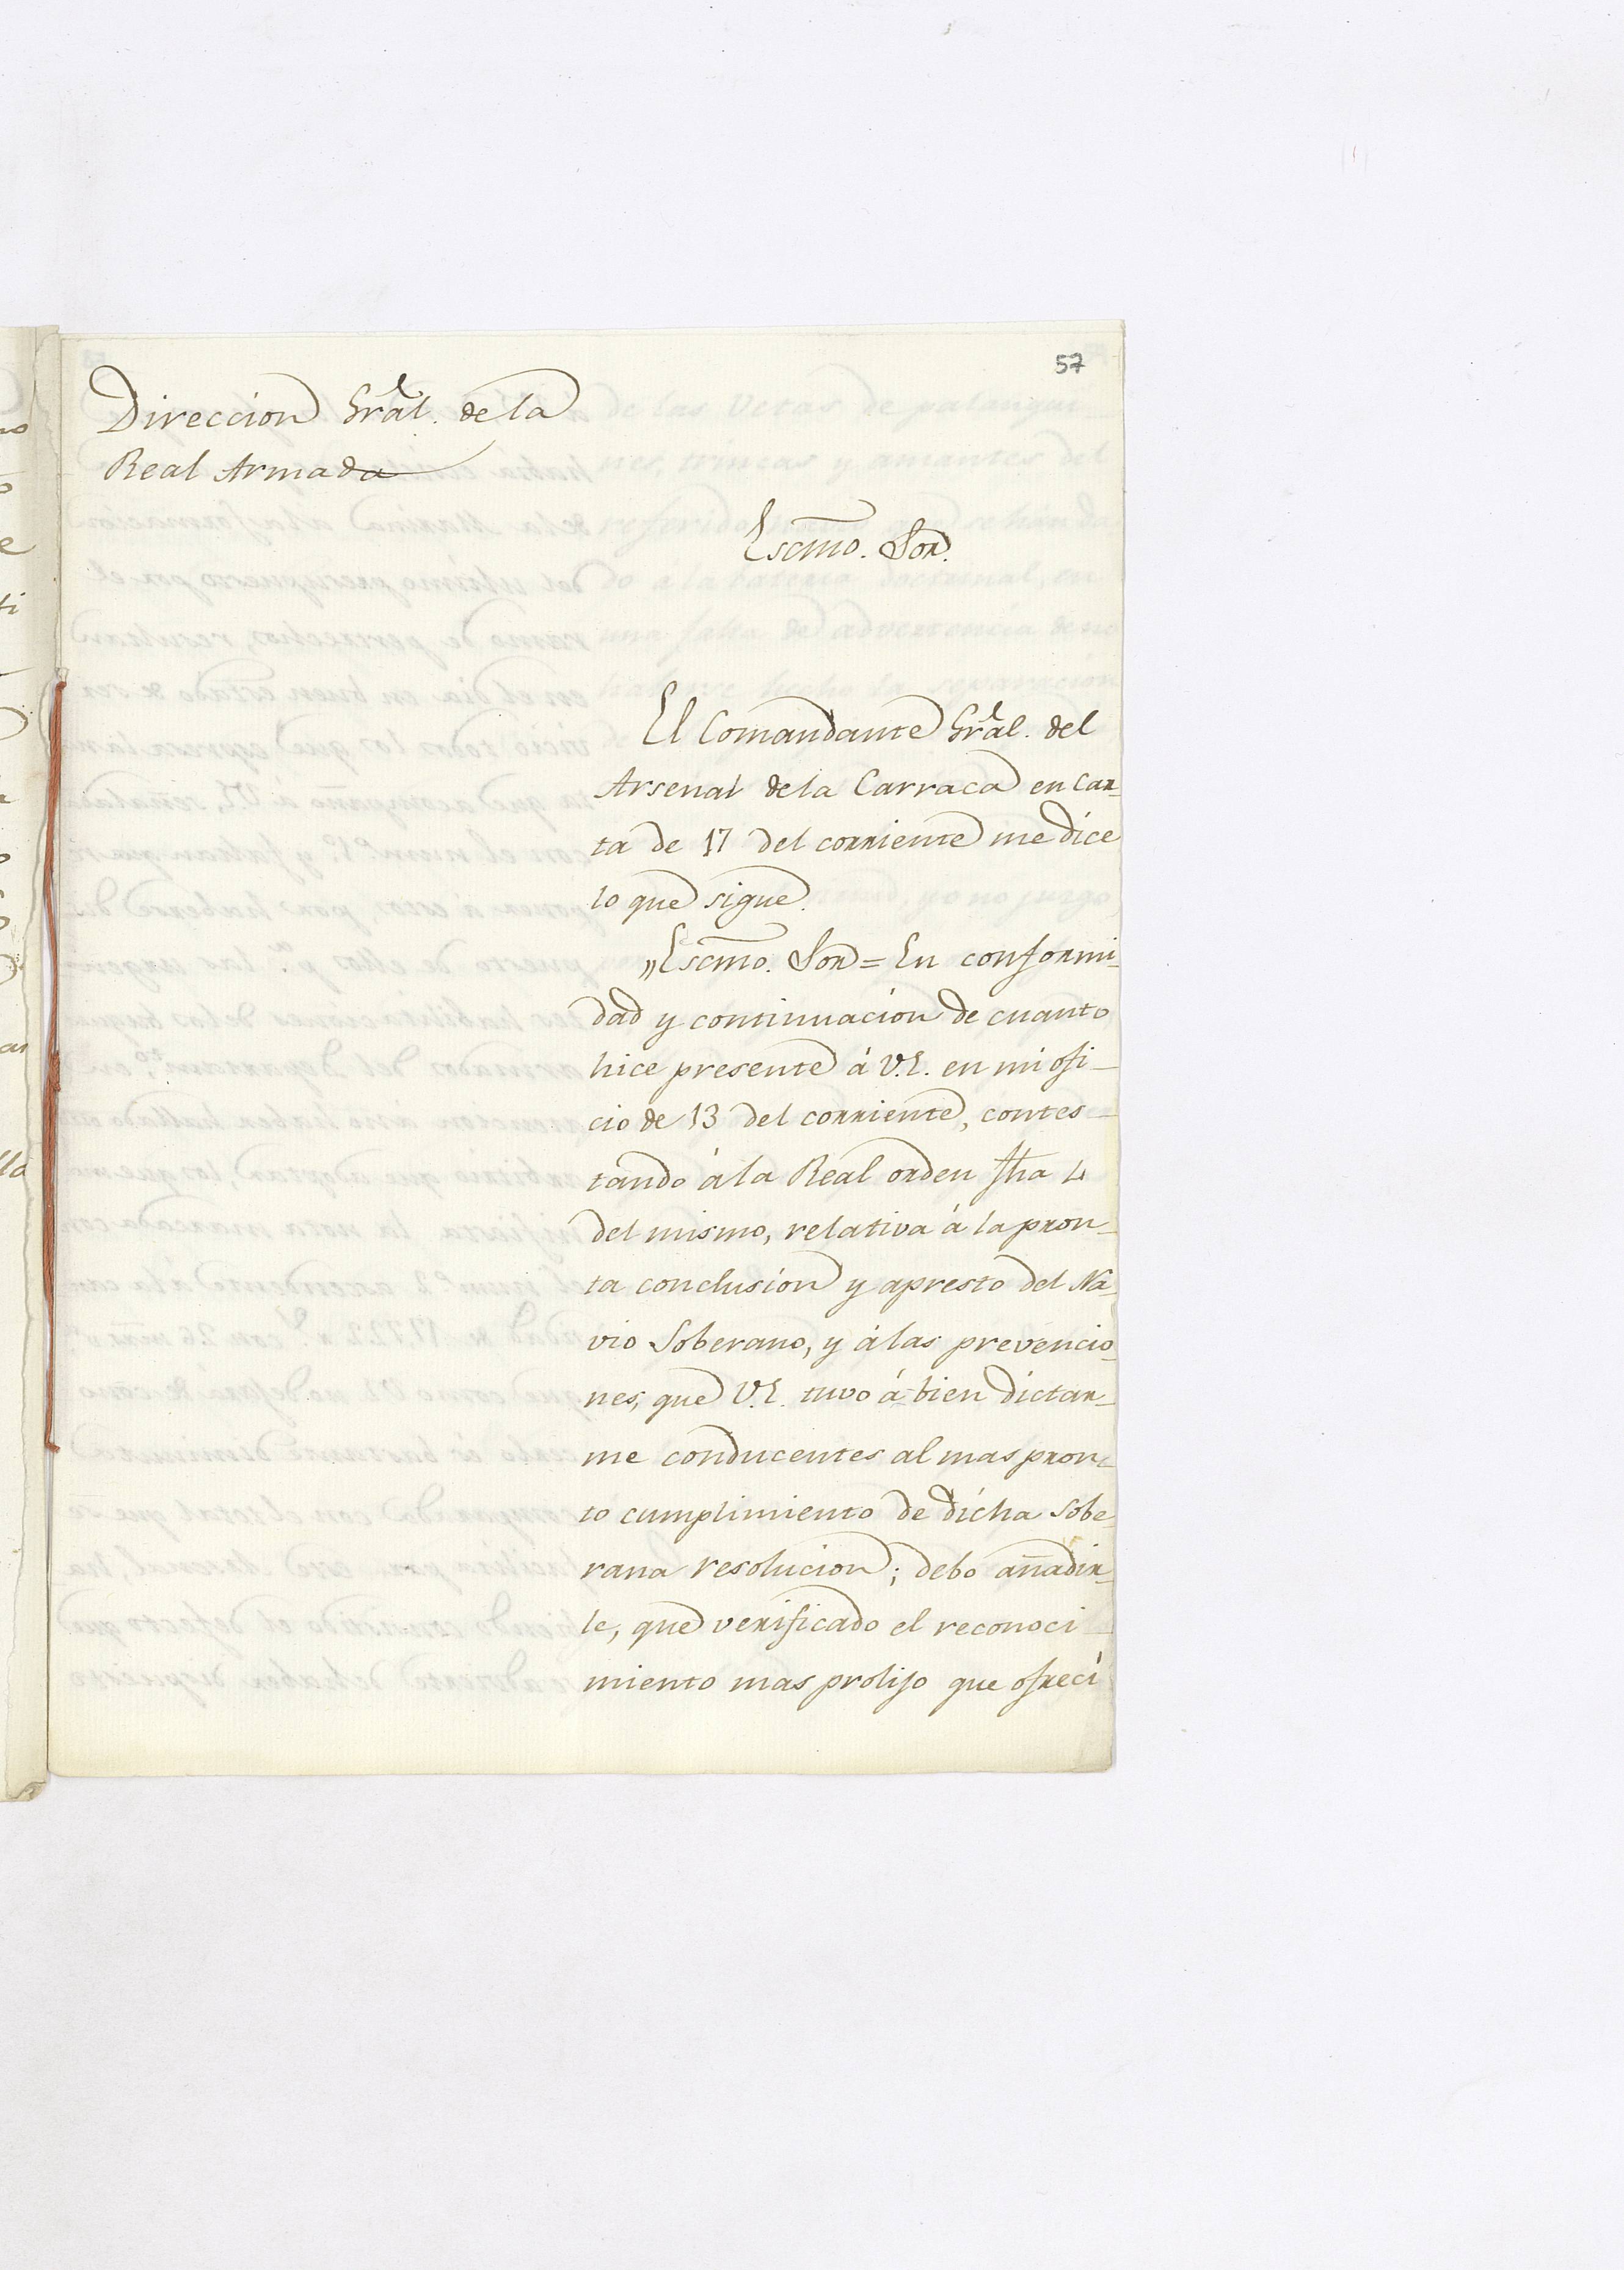 57
Direccion Gräl. de la
Real Armada
Escmo. Sor.
El Comandante Gräl. del
Arsenal de la Carraca en Car-
ta de 17 del corriente me dice
lo que sigue.
"Escmo. Sor = En conformi-
dad y continuacion de cuanto
hice presente á V.E. en mi ofi-
cio de 13 del corriente, contes-
tando á la Real orden fha 4
del mismo, relativa á la pron-
ta conclusion y apresto del Na-
vio Soberano, y á las prevencio-
nes, que V.E. tuvo á bien dictar-
me conducentes al mas pron-
to cumplimiento de dicha Sobe-
rana resolucion; debo añadir-
le, que verificado el reconoci-
miento mas prolijo que ofreci